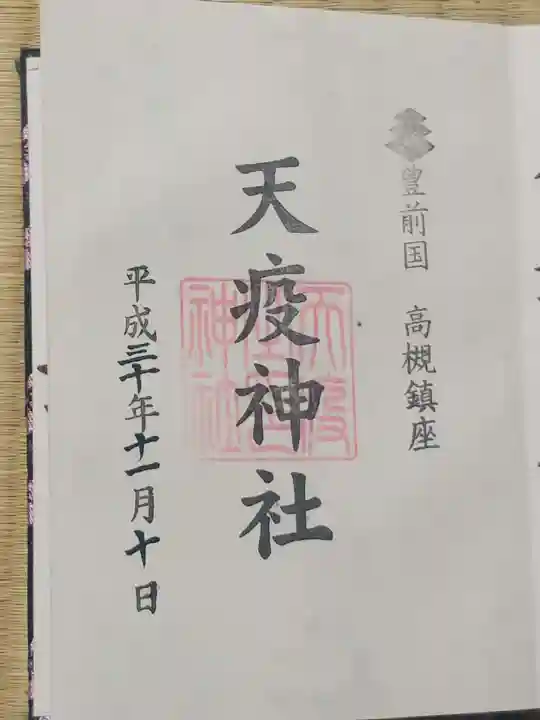 豊前国 高槻鎮座
天疫神社
平成三十年十一月十日